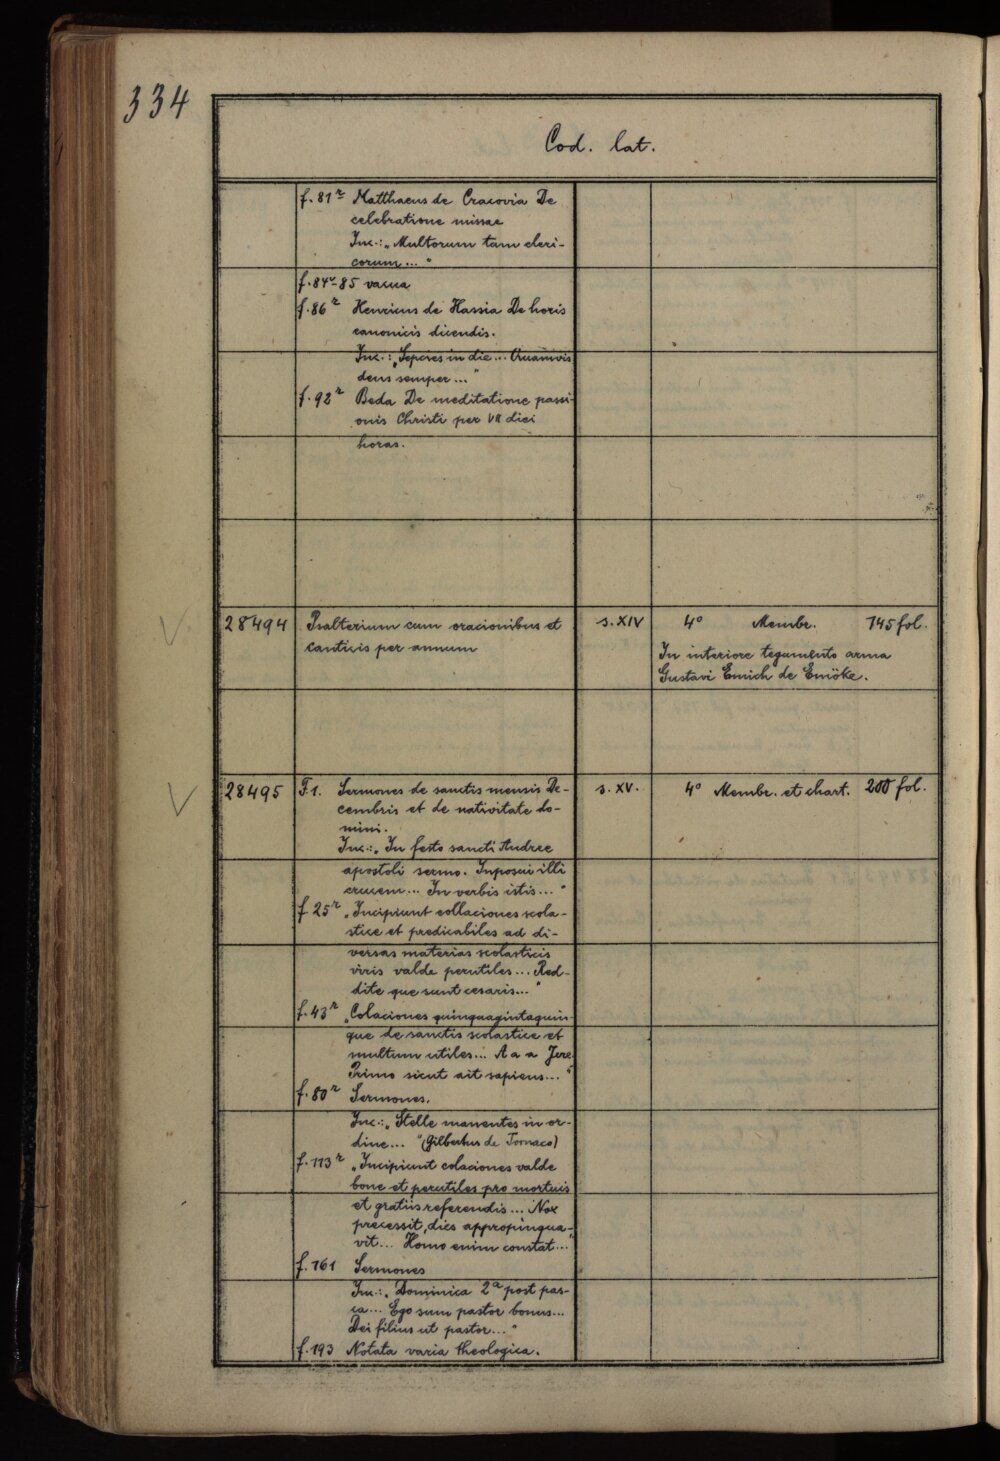 334
Cod. lat.
f. 81r Matthaeus de Cracovia De
celebratione missae
Inc.: „Multorum tam cleri-
corum..."
f. 84v-85 vacua
f. 86r Henricus de Hassia De horis
canonicis dicendis.
Inc.: „Sepcies in die... Quamvis
deus semper..."
f. 92r Beda De meditatione passi-
onis Christi per VII diei
horas.
28494 Psalterium cum oracionibus et s. XIV 4° Membr. 145 fol.
canticis per annum
In interiore tegumento arma
Gustavi Emich de Emöke.
28495 F 1. Sermones de sanctis mensis De- s. XV. 4° Membr. et chart. 200 fol.
cembris et de nativitate do-
mini.
Inc.: „In festo sancti Andree
apostoli sermo. Inposui illi
crucem... In verbis istis..."
f 25r „Incipiunt collaciones scola-
stice et predicabiles ad di-
versas materias scolasticis
viris valde perutiles... Red-
dite que sunt cesaris..."
f. 43r „Colaciones quinquagintaquin-
que de sanctis scolastice et
multum utiles... A a a Jere.
Primo sicut ait sapiens..."
f. 80r Sermones.
Inc.: „Stelle manentes in or-
dine..." (Gilbertus de Tornaco)
f. 113r „Incipiunt colaciones valde
bone et perutiles pro mortuis
et gratiis referendis... Nox
precessit, dies appropinqua-
vit... Homo enim constat..."
f. 161 Sermones
Inc.: „Dominica 2a post pas-
ca... Ego sum pastor bonus...
Dei filius ut pastor..."
f. 193 Notata varia theologica.